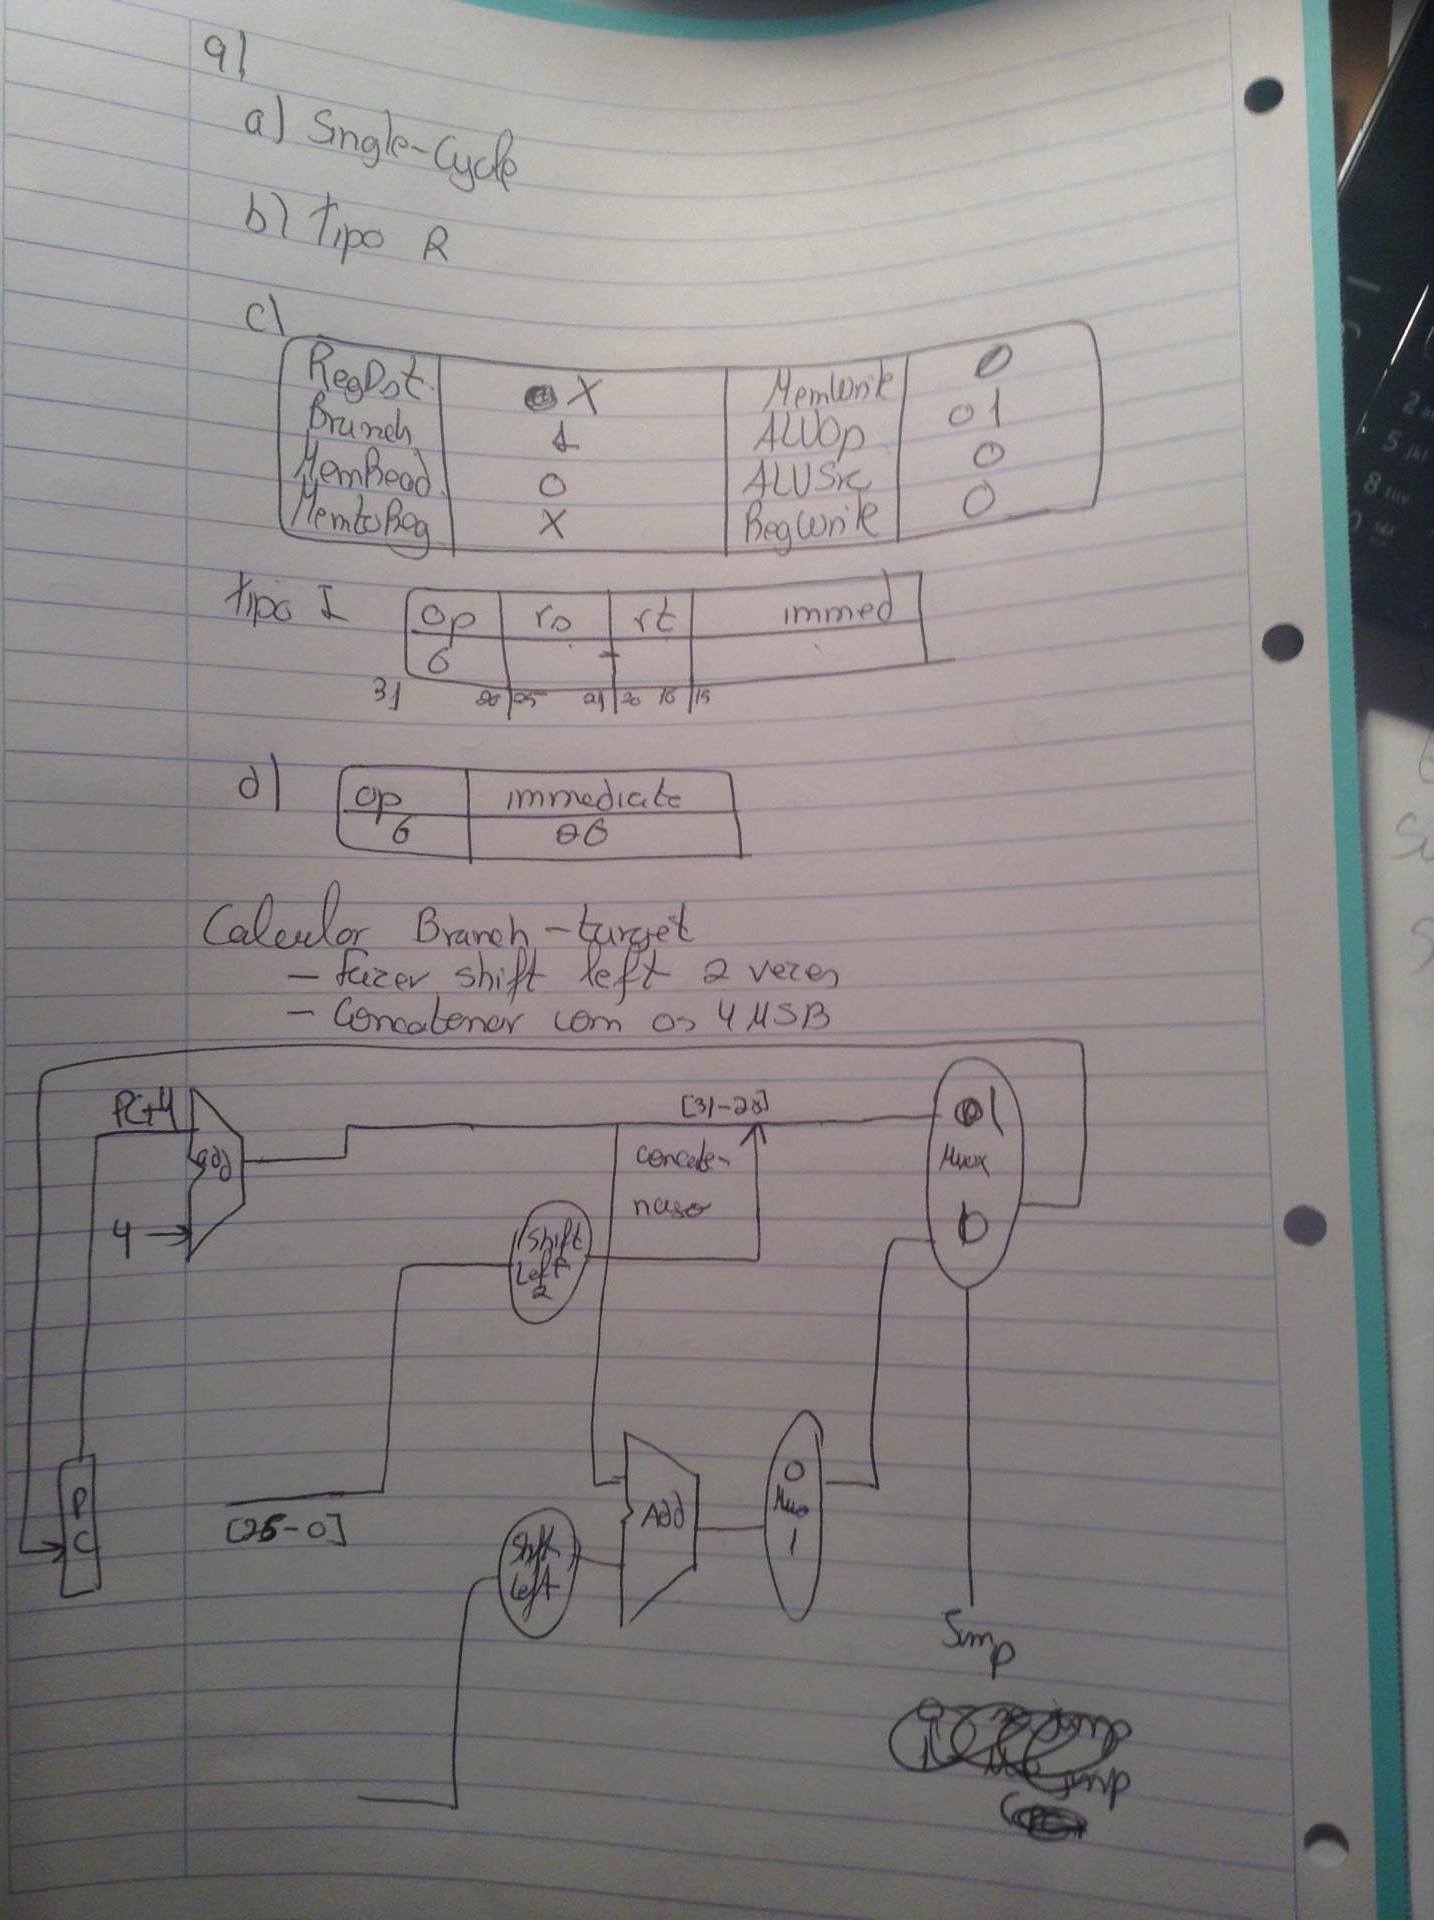 9)
a) Single-Cycle
b) Tipo R
c)
RegDst X MemWrite 0
Branch 1 ALUOp 01
MemRead 0 ALUSrc 0
MemtoReg X RegWrite 0
tipo I op rs rt immed
6
31 26 25 21 20 16 15
d) op immediate
6 26
Calcular Branch-target
- fazer shift left 2 vezes
- Concatenar com os 4 MSB
PC+4 [31-28]
add concate- 1 Mux 0
4 naso
Shift Left 2
PC
[25-0]
Shift Left
Add
0 Mux 1
Jump